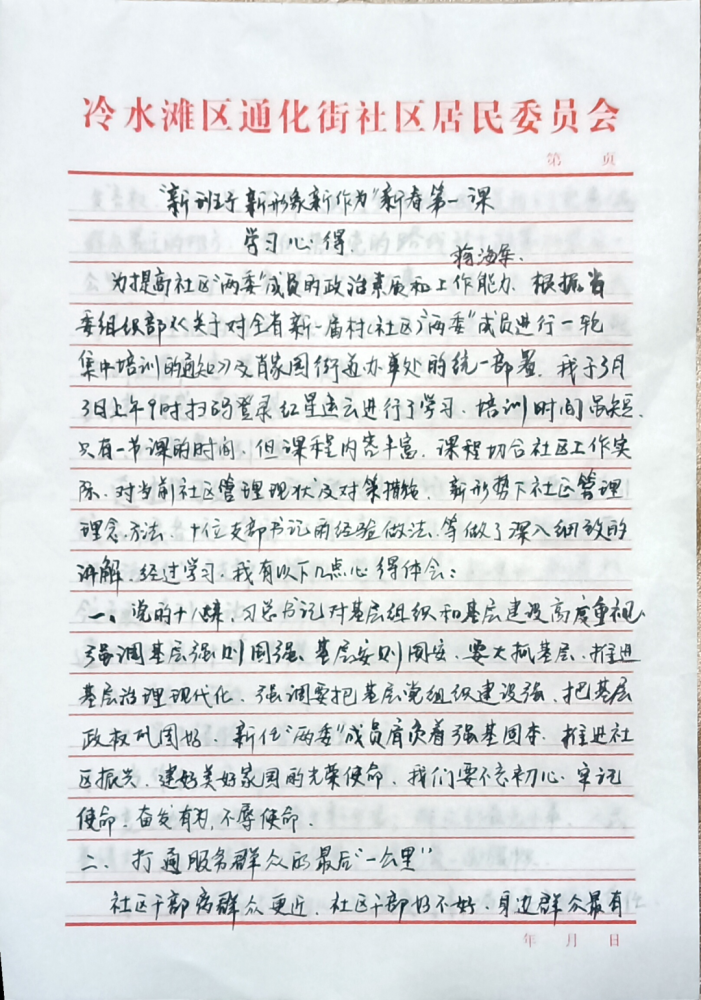 冷水滩区通化街社区居民委员会
第 页
“新班子新形象新作为”新春第一课
学习心得
蒋海军.
为提高社区“两委”成员的政治素质和工作能力、根据省
委组织部《关于对全省新一届村(社区)“两委”成员进行一轮
集中培训的通知》及肖家园街道办事处的统一部署、我于3月
3日上午9时扫码登录红星云进行了学习、培训时间虽短、
只有一节课的时间、但课程内容丰富、课程切合社区工作实
际、对当前社区管理现状及对策措施、新形势下社区管理
理念、方法、十位支部书记的经验做法、等做了深入细致的
讲解、经过学习、我有以下几点心得体会：
一、党的十八来、习总书记对基层组织和基层建设高度重视、
强调基层强则国强、基层安则国安、要大抓基层、推进
基层治理现代化、强调要把基层党组织建设强、把基层
政权巩固好 新任“两委”成员肩负着强基固本、推进社
区振兴、建好美好家园的光荣使命、我们要不忘初心、牢记
使命、奋发有为、不辱使命.
二、打通服务群众的最后“一公里”
社区干部离群众更近、社区干部好不好、身边群众最有
年 月 日